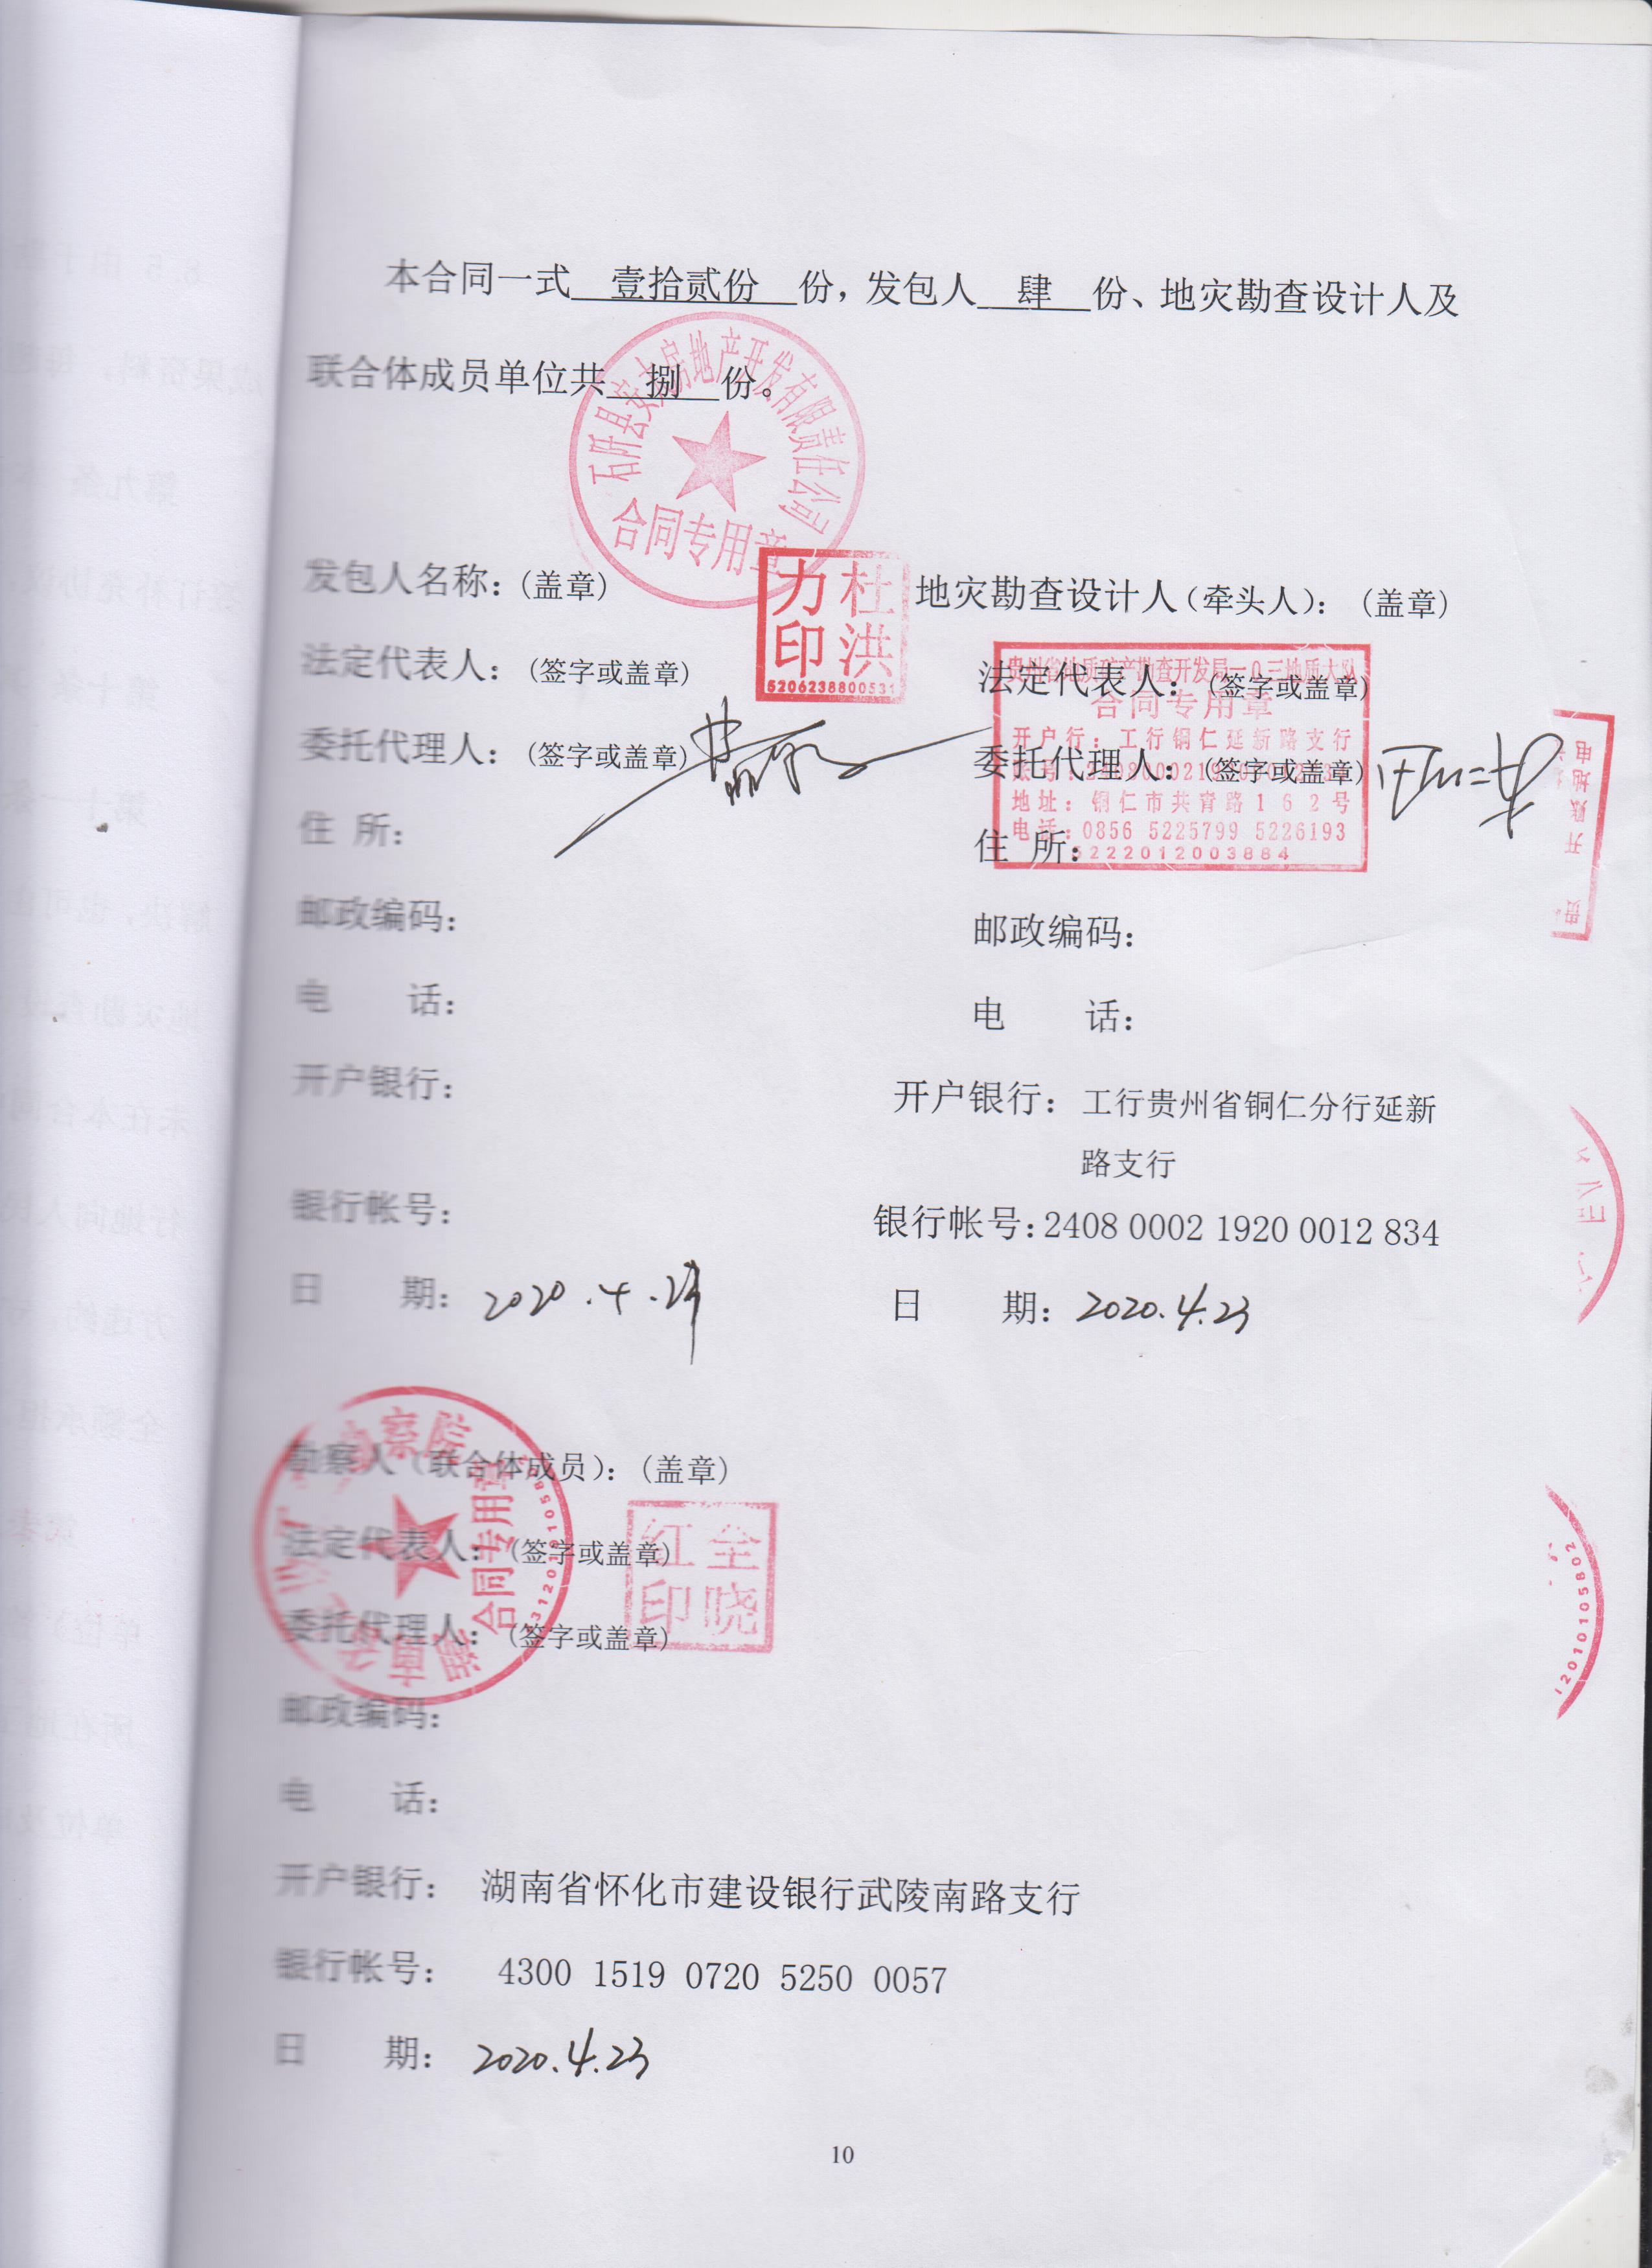 本合同一式 壹拾贰份 份，发包人 肆 份、地灾勘查设计人及
联合体成员单位共 捌 份。
石阡县安 房地产开发有限责任公司
合同专用章
发包人名称：（盖章）
杜洪力印
5206238800531
法定代表人：（签字或盖章）
委托代理人：（签字或盖章）
住 所：
邮政编码：
电 话：
开户银行：
银行帐号：
日 期：2020.4.23
地灾勘查设计人（牵头人）：（盖章）
法定代表人：（签字或盖章）
委托代理人：（签字或盖章）
住 所：
贵州省地质矿产勘查开发局一0三地质大队
合同专用章
开户行：工行铜仁延新路支行
账号：
地址：铜仁市共青路162号
电话：0856 5225799 5226193
5222012003884
邮政编码：
电 话：
开户银行：工行贵州省铜仁分行延新
路支行
银行帐号：2408 0002 1920 0012 834
日 期：2020.4.23
勘察人（联合体成员）：（盖章）
法定代表人：（签字或盖章）
委托代理人：（签字或盖章）
察院
合同专用章
全晓红印
邮政编码：
电 话：
开户银行： 湖南省怀化市建设银行武陵南路支行
银行帐号： 4300 1519 0720 5250 0057
日 期：2020.4.23
开 账 地 电
贵
1201010105802
10